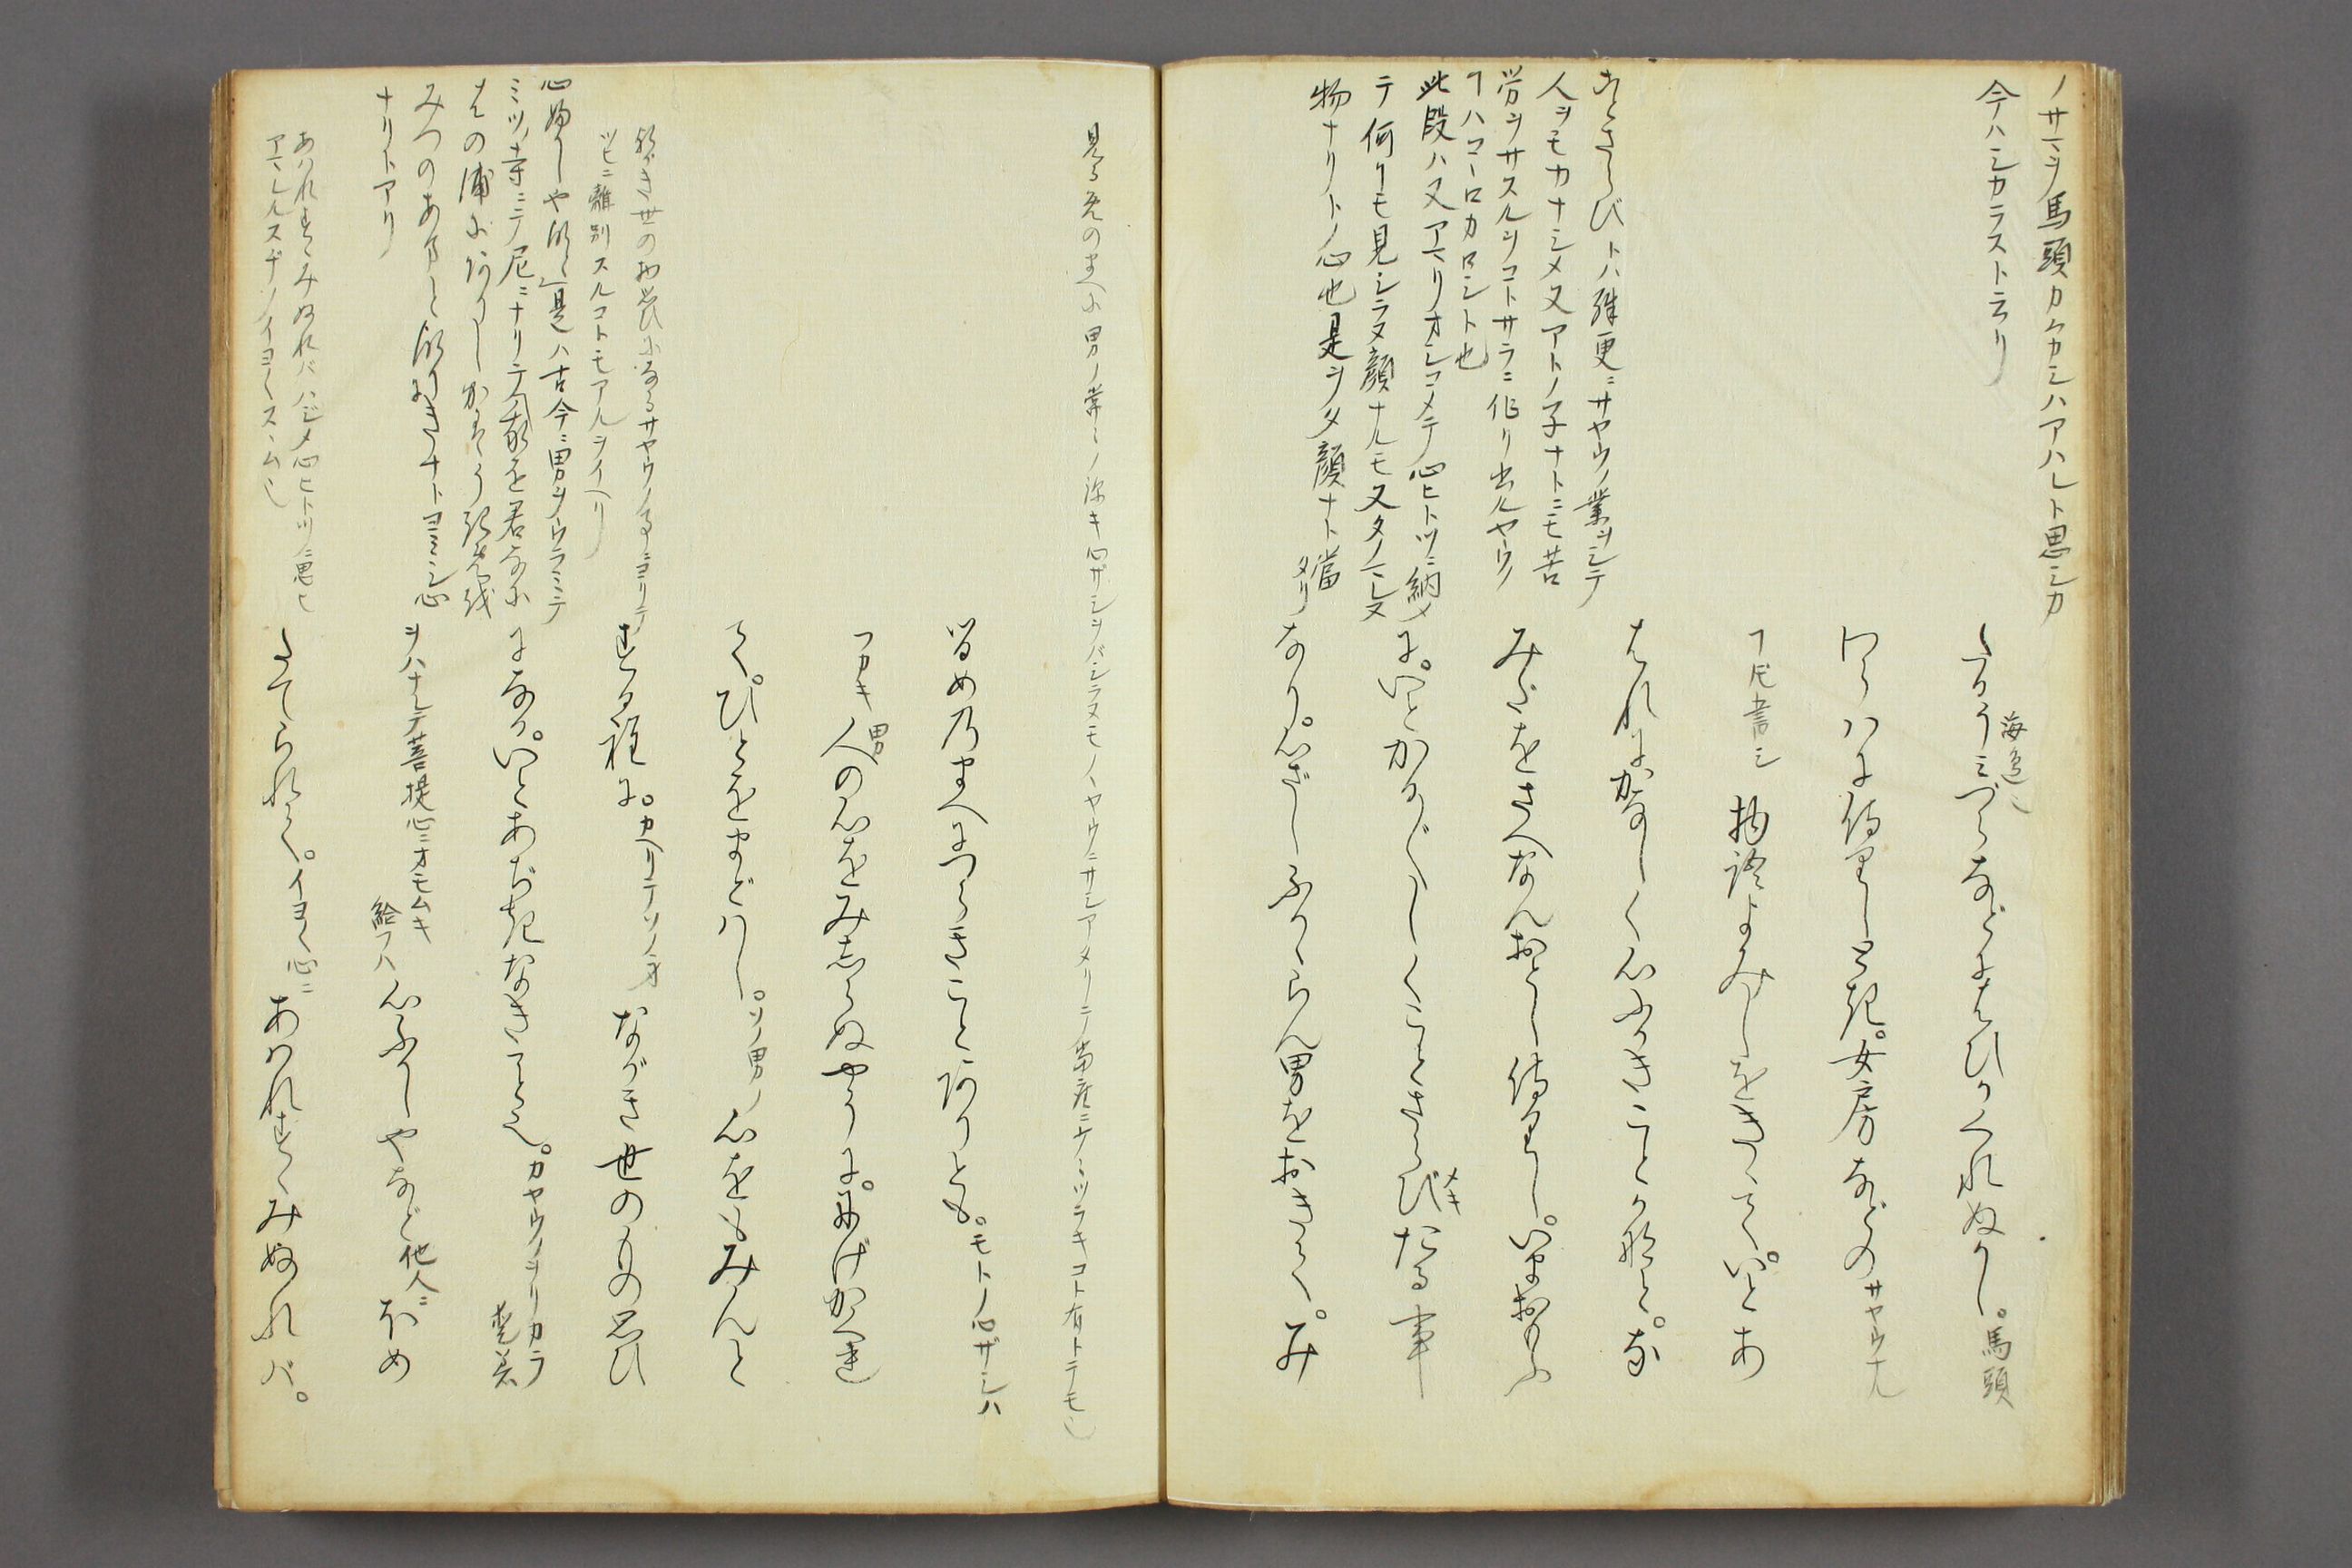 ノサマヲ馬頭カタカシハアハレト思シカ
今ハシカラストテリ
ことさらびトハ殊更ニサヤウノ業ヲシテ
人ヲモカナシメ又アトノ子ナトニモ苦
労ヲサスルヲコトサラニ作リ出ルヤウノ
ヿハコヽロカロシト也
此段ハ又アマリオシコメテ心ヒトツニ納メ
テ何リモ見シラヌ顔ナルモ又タノマレヌ
物ナリトノ心也是ヲ夕顔ナト當
タリ
海邉也
うみづらなどにはひかくれぬかし。馬頭
わらハに侍りしとき。女房などのサヤウナル
ヿ凡書シ物語よみしをきゝて。いとあ
はれにかなしく心ふかきことかなと。な
みだをさへなんおとし侍りし。いまおもふ
に。いとかる〲しくことさらびたる事
メキ
なり。心ざしふかゝらん男をおきて。み
見るめのまへに男ノ常々ノ深キ心ザシヲバシラヌモノヽヤウニサシアタリテ當座ニチトツラキコト有トテモ也
るめのまへにつらきことありとも。モトノ心ザシハ
フカキ人の心をみしらぬやうに。にげかくれ
男
て。ひとをまどハし。ソノ男ノ心をもみんと
ながき世の物思ひになるサヤウノ事ニヨリテ
ツヒニ離別スルコトモアルヲイヘリ
する程に。カヘリテソノ身ながき世のもの思ひ
心ふかしや
是ハ古今ニ男ヲウラミテ
ミツノ寺ニテ尼ニナリテ我を君なに
はの浦にありしかばうきめを
みつのあまと
ナトヨミシ心
ナリトアリ
になる。いとあぢきなきこと也。カヤウノヲリカラ
ヲハナレテ菩提心ニオモムキ
給フハ心ふかしやなど他人ニほめ
あハれすゝみぬれバハジメ心ヒトツニ思ヒ
アマレルスヂノイヨ〱スヽム也
たてられて。イヨ〱心ニあハれすゝみぬれバ。